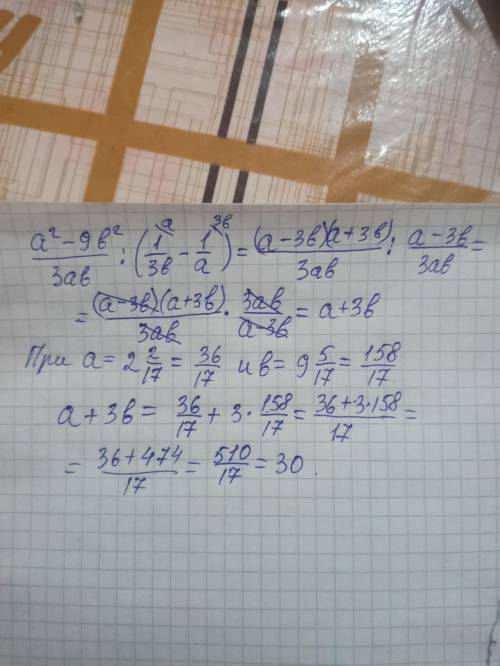 (a² - 9в²)/3aв : (1/3в ᵃ - 1/a ³ᵇ) = (a-3в)(a+3в)/3aв : (a-3в)/3aв =
= (a-3в)(a+3в)/3aв · 3aв/(a-3в) = a+3в
При a = 2 2/17 = 36/17 и в = 9 5/17 = 158/17.
a + 3в = 36/17 + 3·158/17 = (36+3·158)/17 =
= (36+474)/17 = 510/17 = 30.